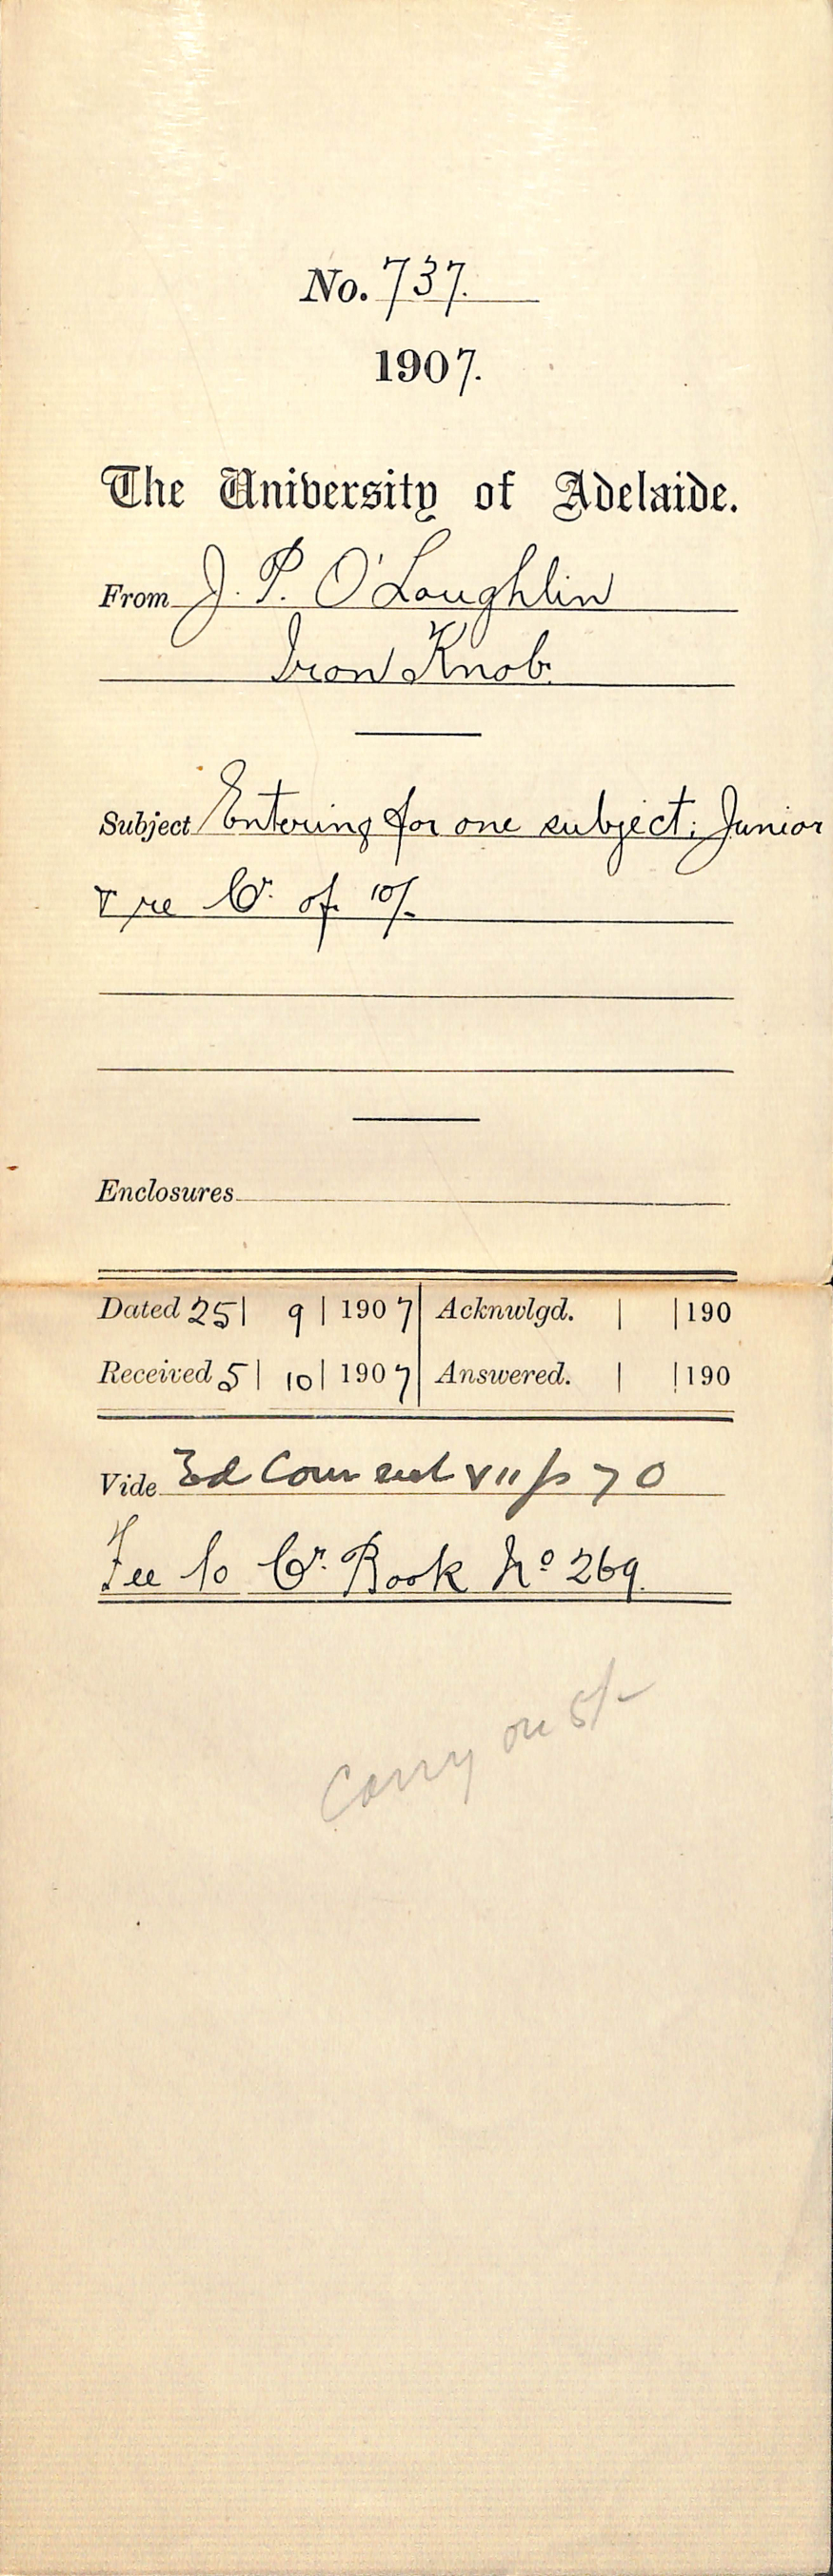 No. 737.
1907.
The University of Adelaide.
From J. P. O'Loughlin
Iron Knob.
Subject Entering for one subject: Junior
& re Cr. of 10/-
Enclosures
Dated 25 | 9 | 1907 Acknwlgd. | | 190
Received 5 | 10 | 1907 Answered. | | 190
Vide Ed Com VII p 70
Fee to Cr. Book No 269.
Carry on 5/-